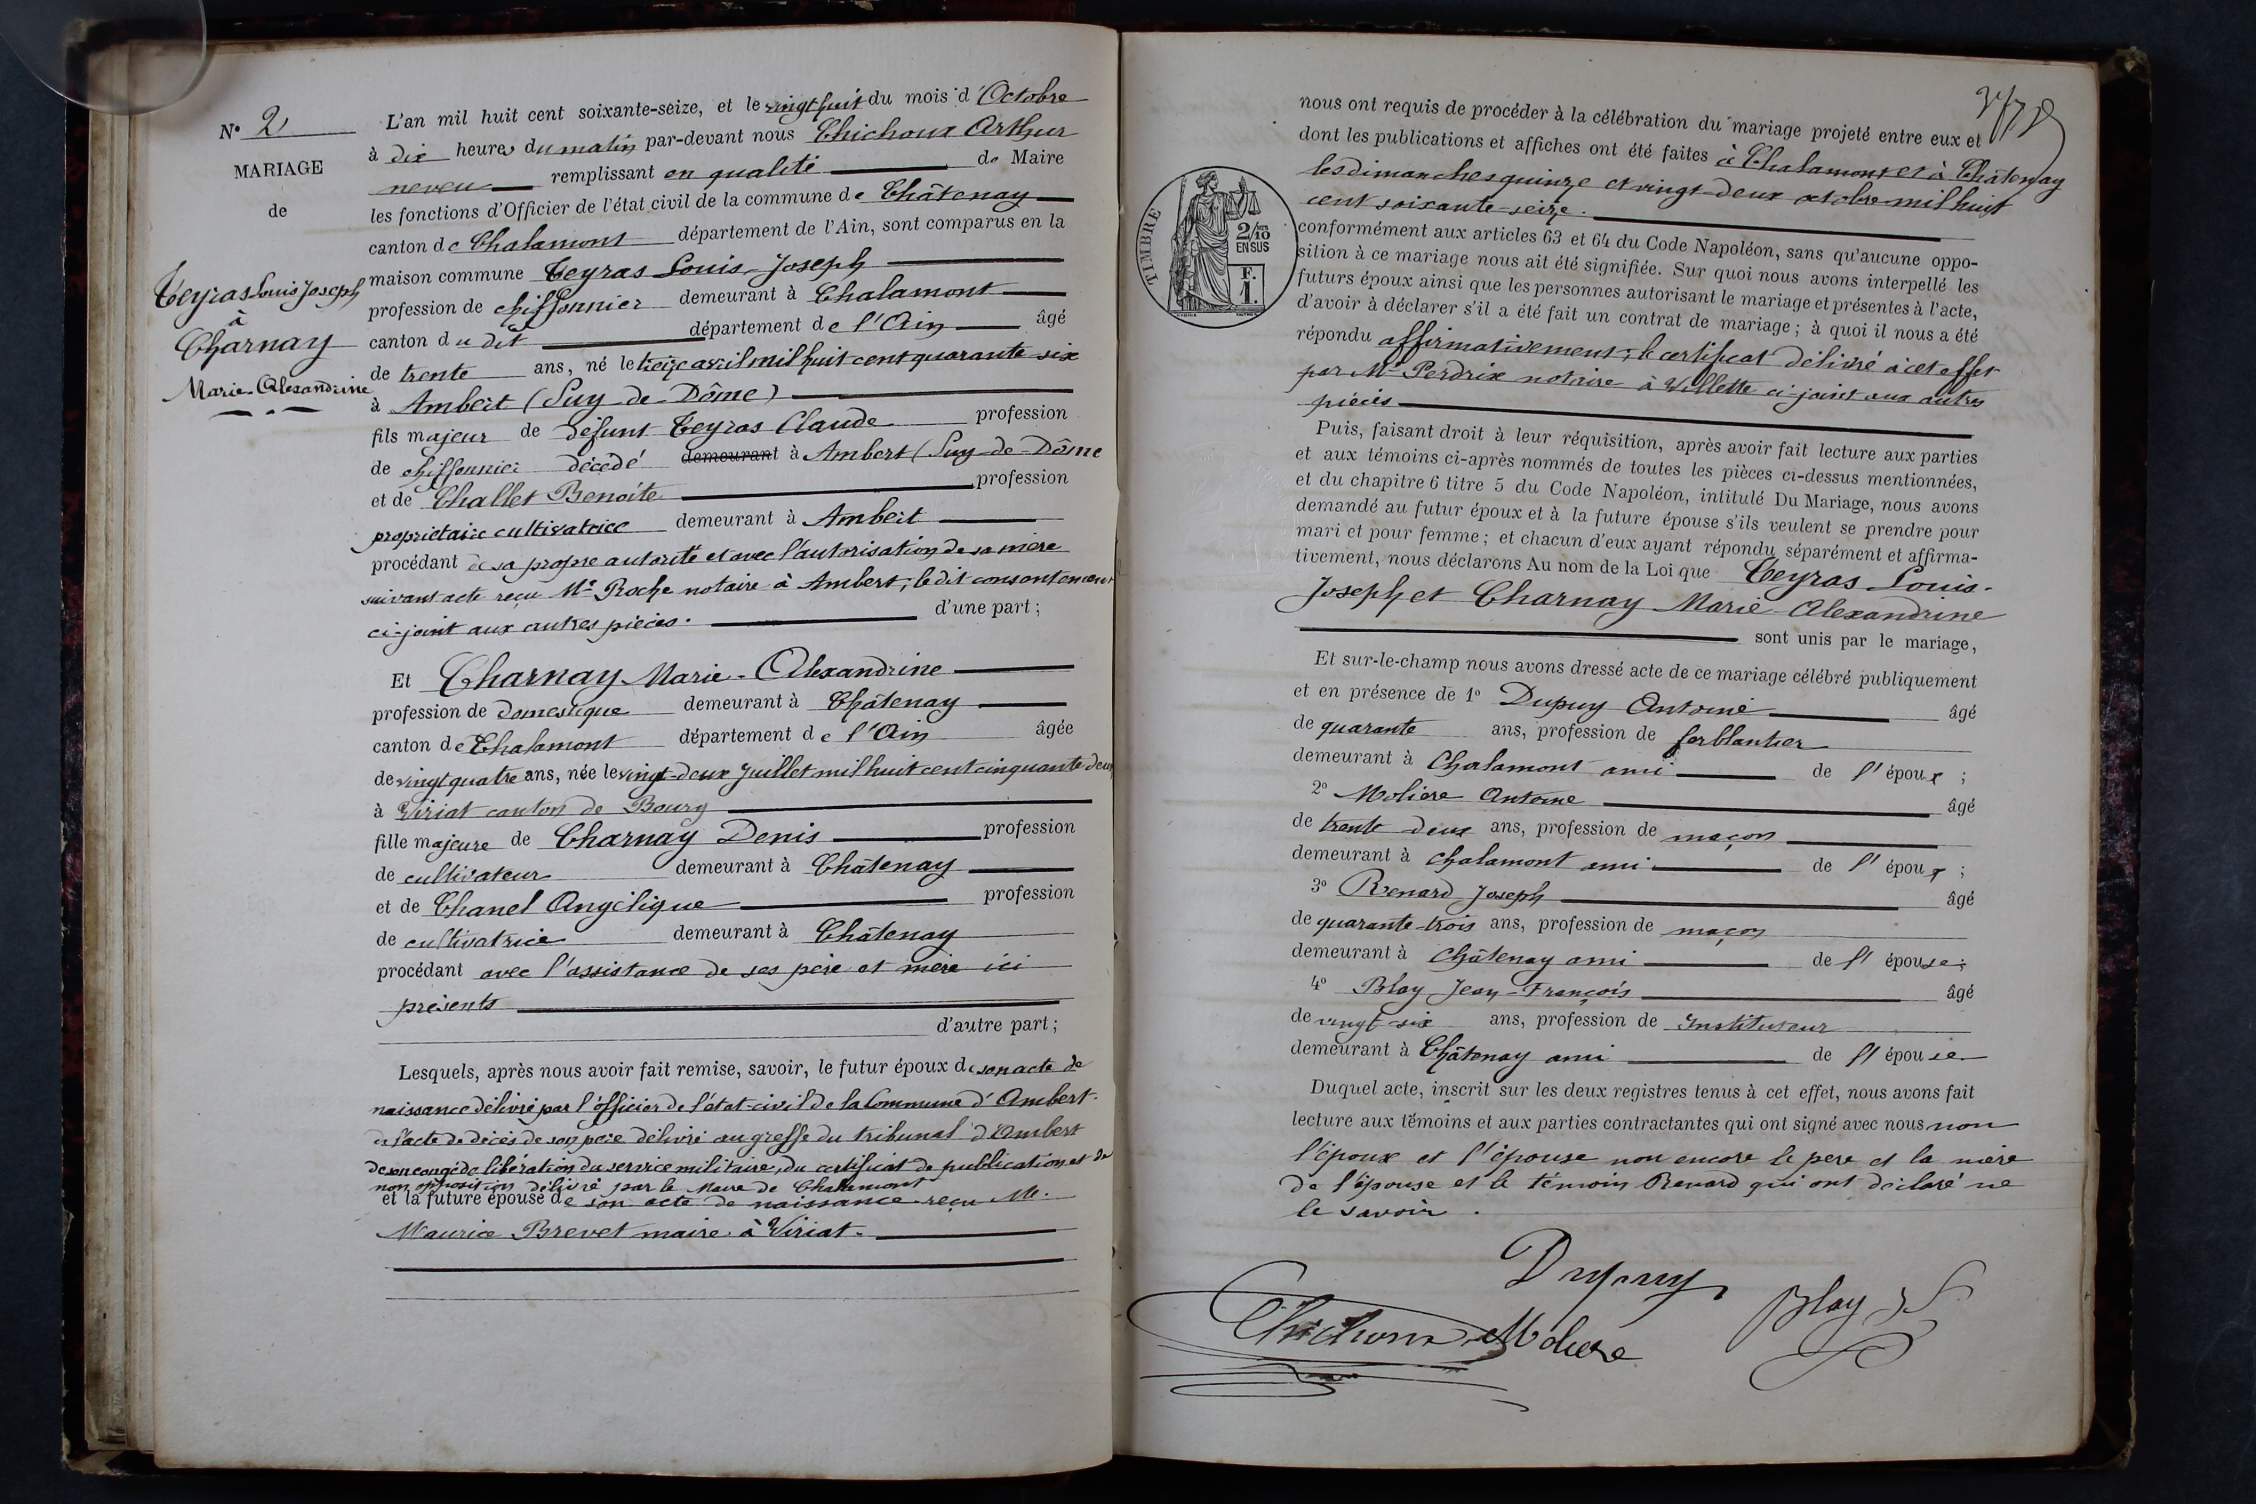 N° 2
MARIAGE
de
Teyras Louis Joseph
à
Charnay
Marie-Alexandrine
L'an mil huit cent soixante-seize, et le vingt huit du mois d'Octobre
à dix heures du matin par-devant nous Chichoux Arthur
neveu remplissant en qualité de Maire
les fonctions d'Officier de l'état civil de la commune de Châtenay
canton de Chalamont département de l'Ain, sont comparus en la
maison commune Teyras Louis-Joseph
profession de chiffonnier demeurant à Chalamont
canton du dit département de l'Ain âgé
de trente ans, né le treize avril mil huit cent quarante six
à Ambert (Puy-de-Dôme)
fils majeur de défunt Teyras Claude profession
de chiffonnier décédé demeurant à Ambert (Puy-de-Dôme
et de Challet Benoîte profession
propriétaire cultivatrice demeurant à Ambert
procédant de sa propre autorité et avec l'autorisation de sa mère
suivant acte reçu Me Roche notaire à Ambert, le dit consentement
ci-joint aux autres pièces. d'une part;
Et Charnay Marie-Alexandrine
profession de domestique demeurant à Châtenay
canton de Chalamont département de l'Ain âgée
de vingt quatre ans, née le vingt-deux Juillet mil huit cent cinquante deux
à Viriat canton de Bourg
fille majeure de Charnay Denis profession
de cultivateur demeurant à Châtenay
et de Chanel Angélique profession
de cultivatrice demeurant à Châtenay
procédant avec l'assistance de ses père et mère ici
présents
d'autre part;
Lesquels, après nous avoir fait remise, savoir, le futur époux de son acte de
naissance délivré par l'officier de l'état-civil de la Commune d'Ambert-
de l'acte de décès de son père délivré au greffe du tribunal d'Ambert
de son congé de libération du service militaire, du certificat de publication et de
non opposition délivré par le Maire de Chalamont
et la future épouse de son acte de naissance reçu Me.
Maurice Brevet maire à Viriat.
nous ont requis de procéder à la célébration du mariage projeté entre eux et
dont les publications et affiches ont été faites à Chalamont et à Châtenay
les dimanches quinze et vingt-deux octobre mil huit
cent soixante-seize.
TIMBRE
2/10
EN SUS
F.
1.
conformément aux articles 63 et 64 du Code Napoléon, sans qu'aucune oppo-
silion à ce mariage nous ait été signifiée. Sur quoi nous avons interpellé les
futurs époux ainsi que les personnes autorisant le mariage et présentes à l'acte,
d'avoir à déclarer s'il a été fait un contrat de mariage; à quoi il nous a été
répondu affirmativement; le certificat délivré à cet effet
par Me Perdrix notaire à Villette ci-joint aux autres
pièces
Puis, faisant droit à leur réquisition, après avoir fait lecture aux parties
et aux témoins ci-après nommés de toutes les pièces ci-dessus mentionnées,
et du chapitre 6 titre 5 du Code Napoléon, intitulé Du Mariage, nous avons
demandé au futur époux et à la future épouse s'ils veulent se prendre pour
mari et pour femme; et chacun d'eux ayant répondu séparément et affirma-
tivement, nous déclarons Au nom de la Loi que Teyras Louis-
Joseph et Charnay Marie-Alexandrine
sont unis par le mariage,
Et sur-le-champ nous avons dressé acte de ce mariage célébré publiquement
et en présence de 1° Dupuy Antoine âgé
de quarante ans, profession de ferblantier
demeurant à Chalamont ami de l'époux;
2° Molière Antoine âgé
de trente deux ans, profession de maçon
demeurant à Chalamont ami de l'époux;
3° Renard Joseph âgé
de quarante-trois ans, profession de maçon
demeurant à Châtenay ami de l'épouse;
4° Blay Jean-François âgé
de vingt six ans, profession de Instituteur
demeurant à Châtenay ami de l'épouse
Duquel acte, inscrit sur les deux registres tenus à cet effet, nous avons fait
lecture aux témoins et aux parties contractantes qui ont signé avec nous non
l'époux et l'épouse non encore le père et la mère
de l'épouse et le témoin Renard qui ont déclaré ne
le savoir.
Dupuy
Chichoux Molière Blay J F